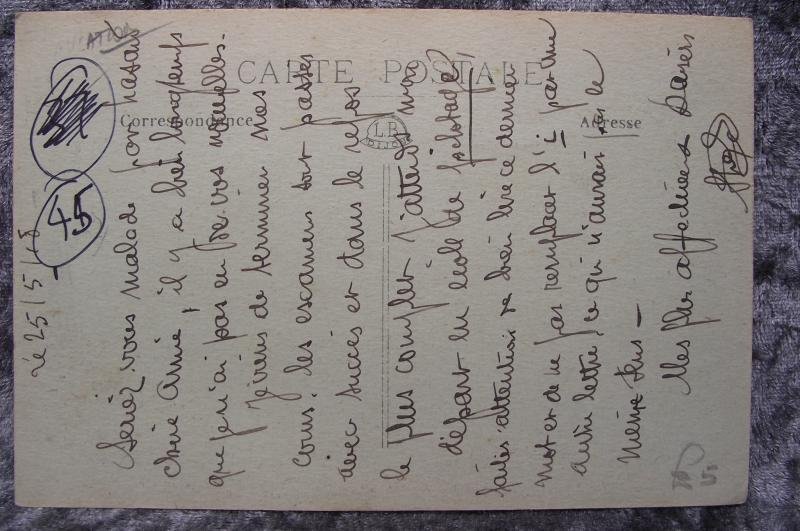 CARTE POSTALE
Correspondance
Adresse
L.B.
DIJON
AVIATION
45
Le 25/5/18
Seriez vous malade
chère amie, il y a bien longtemps
que je n'ai pas eu de vos nouvelles.
Je viens de terminer mes
cours, les examens sont passés
avec succès et dans le repos
le plus complet j'attends mon
départ en école de pilotage,
faites attention de bien lire ce dernier
mot et de ne pas remplacer l'i par une
autre lettre, ce qui n'aurait pas le
même sens –
Mes plus affectueux baisers